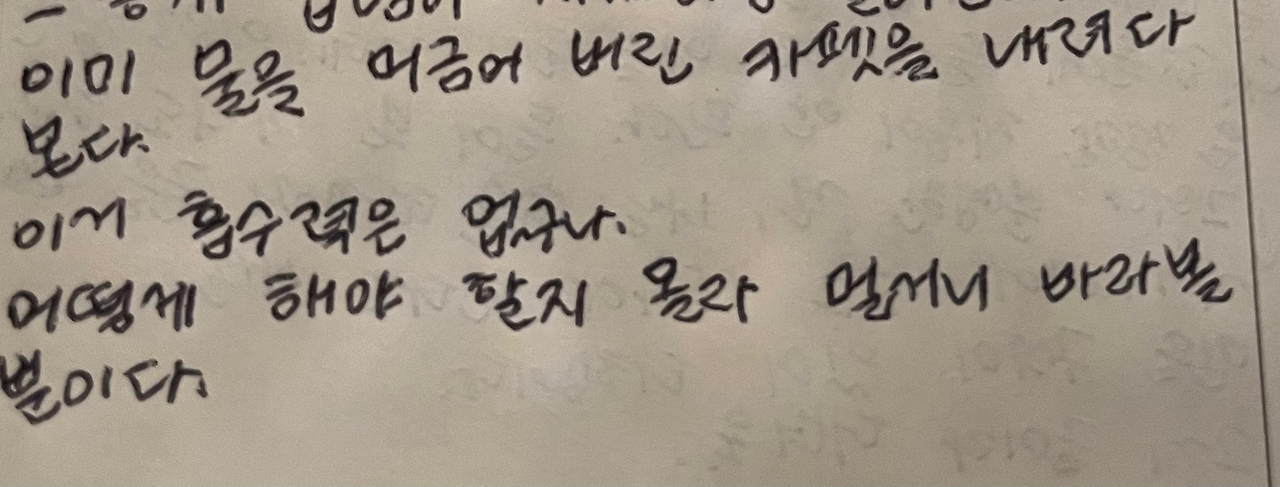 이미 물을 머금어 버린 카펫을 내려다
본다.
이거 흡수력은 없구나.
어떻게 해야 할지 몰라 멀거니 바라볼
뿐이다.